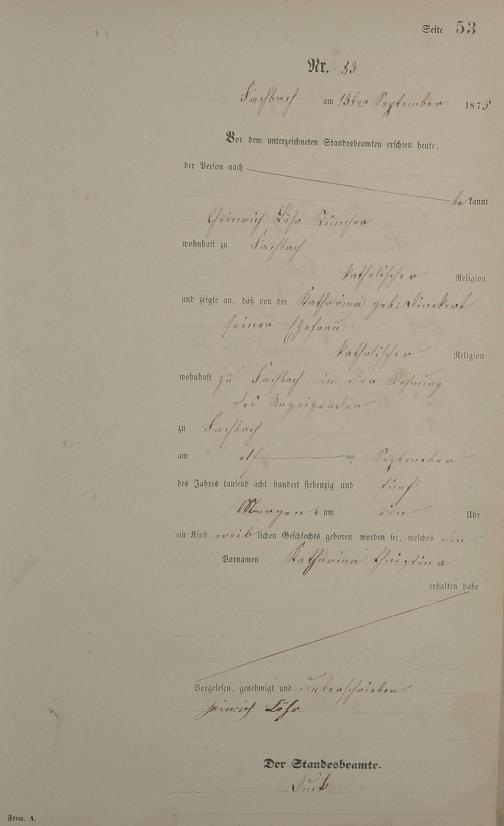 Seite 53
Nr. 53
Fachbach am 13ten September 1875
Vor dem unterzeichneten Standesbeamten erschien heute,
der Person nach
be kannt
Heinrich Löhr Tüncher
wohnhaft zu Fachbach
katholischer Religion
und zeigte an, daß von der Katharina geb: Dinckert
seiner Ehefrau
katholischer Religion
wohnhaft zu Fachbach in der Wohnung
des Anzeigenden
zu Fachbach
am elf ten September
des Jahres tausend acht hundert siebenzig und fünf
Morgens um ein Uhr
ein Kind weib lichen Geschlechts geboren worden sei, welches den
Vornamen Katharina Christina
erhalten habe
Vorgelesen, genehmigt und unterschrieben
Heinrich Löhr
Der Standesbeamte.
Form. A.